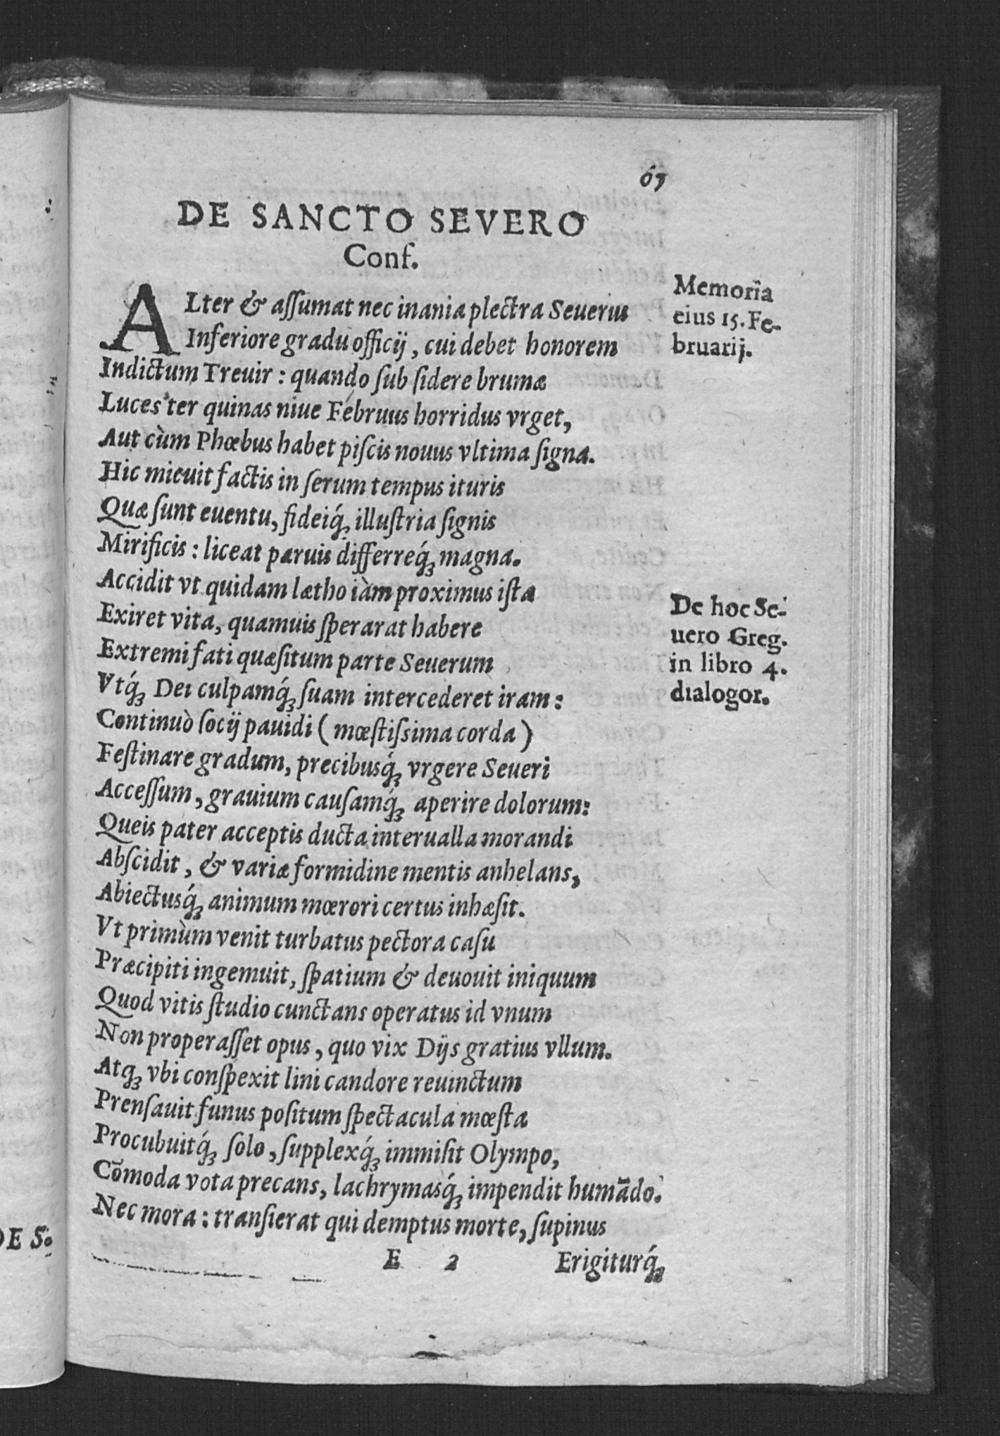 63
DE SANCTO SEVERO
Conf.
ALter & aſſumat nec inania plectra Seuerus
Inferiore gradu officij, cui debet honorem
Indictum Treuir : quando ſub ſidere brumæ
Luces ter quinas niue Februus horridus vrget,
Aut cùm Phœbus habet piſcis nouus vltima ſigna.
Hic micuit factis in ſerum tempus ituris
Quæ ſunt euentu, fideiq́ꝫ illuſtria ſignis
Mirificis : liceat paruis differreq́ꝫ magna.
Accidit vt quidam lætho iàm proximus iſta
Exiret vita, quamuis ſperarat habere
Extremi fati quæſitum parte Seuerum
Vtq́ꝫ Dei culpamq́ꝫ ſuam intercederet iram :
Continuò ſocij pauidi ( mœſtiſsima corda )
Feſtinare gradum, precibusq́ꝫ vrgere Seueri
Acceſſum, grauium cauſamq́ꝫ aperire dolorum:
Queis pater acceptis ducta interualla morandi
Abſcidit, & variæ formidine mentis anhelans,
Abiectusq́ꝫ animum mœrori certus inhæſit.
Vt primùm venit turbatus pectora caſu
Præcipiti ingemuit, ſpatium & deuouit iniquum
Quod vitis ſtudio cunctans operatus id vnum
Non properaſſet opus, quo vix Dijs gratius vllum.
Atqꝫ vbi conſpexit lini candore reuinctum
Prenſauit funus poſitum ſpectacula mœſta
Procubuitq́ꝫ ſolo, ſupplexq́ꝫ immiſit Olympo,
Cõmoda vota precans, lachrymasq́ꝫ impendit humãdo.
Nec mora : tranſierat qui demptus morte, ſupinus
E 2 Erigiturq́ꝫ
Memoria
eius 15. Fe-
bruarij.
De hoc Se-
uero Greg.
in libro 4.
dialogor.
DE S.